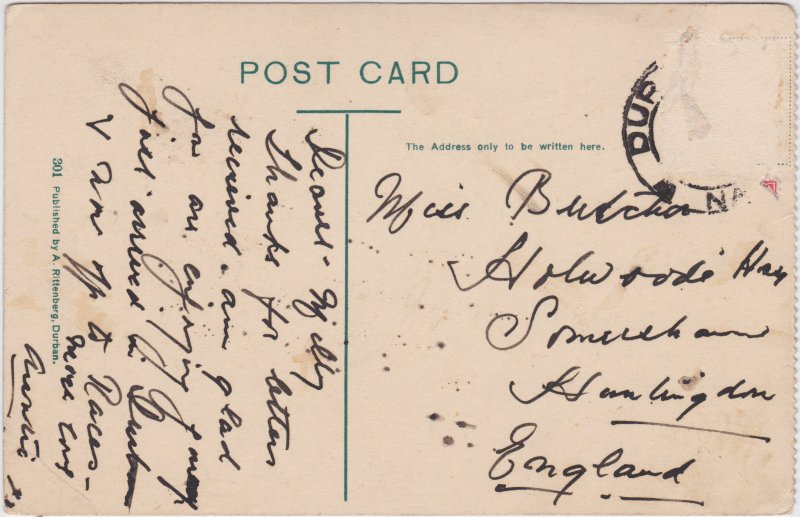 POST CARD
The Address only to be written here.
DUR
N
Miss Butcher
Holwoods Hay
Somersham
Huntingdon
England
Dearest Milly
Thanks for letters
received. am glad
you are enjoying
Just arrived in Durban
& am off to Races -
more love
Austin
301 Published by A. Rittenberg, Durban.